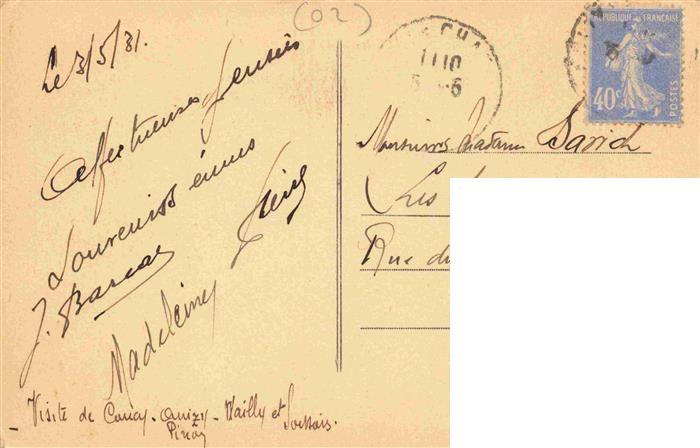 (02)
Le 3/5/31.
Affectueuses pensées
Souvenirs émus
J. Bascar
Madeleine
Visite de Coucy - Anizy - Vailly et Soissons.
Pinon
11 10
RÉPUBLIQUE FRANÇAISE
40c
POSTES
Monsieur Madame David
Rue du